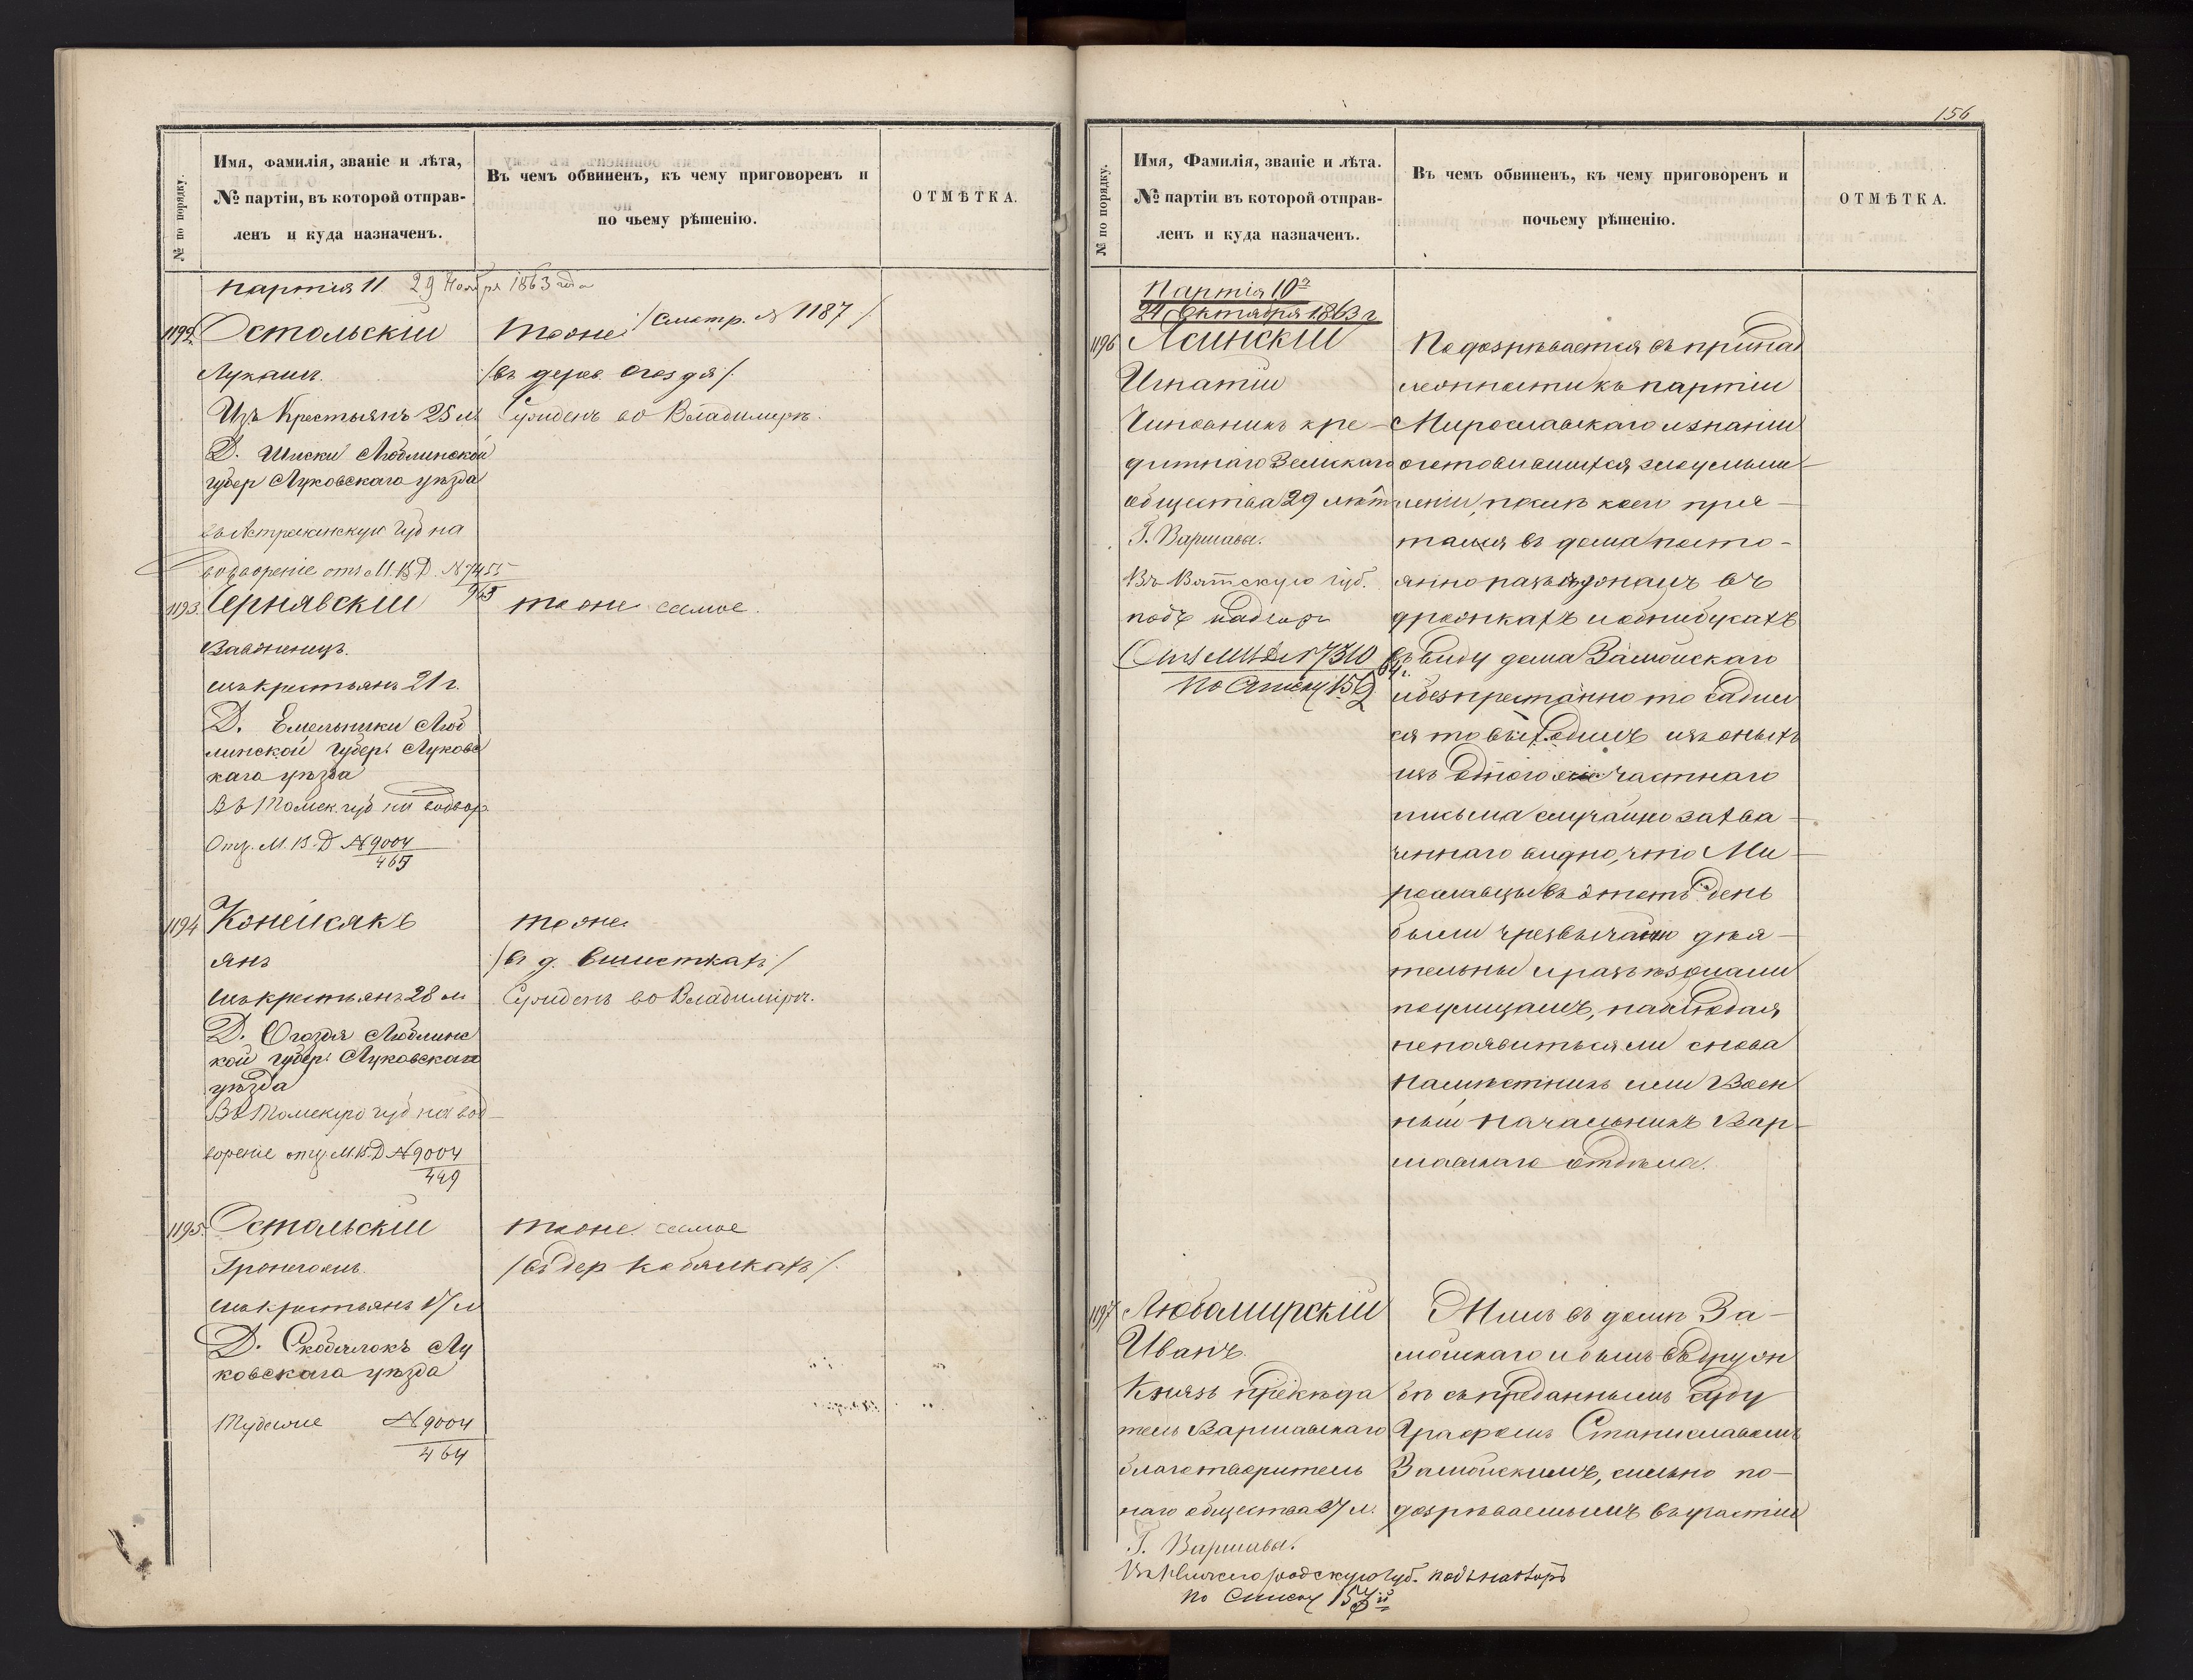 № по порядку.
Имя, фамилія, званіе и лѣта,
№ партіи, въ которой отправ-
ленъ и куда назначенъ.
Въ чемъ обвиненъ, къ чему приговоренъ и
по чьему рѣшенію.
ОТМѢТКА.
партія 11 29 Ноября 1863 года
1192 Остольскій
Лукашъ.
Изъ Крестьянъ 25 л
Д. Шиски Люблинской
губер Луковскаго уѣзда
въ Астраханскую губ на
водвореніе отъ М.В.Д. №7455
965
тоже /Смотр. № 1187/
/въ дерев. Огоздя/
Сужденъ во Владимирѣ.
1193. Чернявскій
Вавженецъ.
изъ крестьянъ 21 г.
Д. Емельники Люб
линской Губер: Луковс
кага уѣзда
Въ Томск. губ на водвор
Отз. М.В.Д №9004
465
тоже самое.
1194 Конейсякъ
Янъ
изъ крестьянъ 28 л
Д. Огоздя Люблинс
кой губер: Луковскаго
уѣзда
Въ Томскую губ на вод-
вореніе отз М.В.Д №9004
449
тоже
/въ д. /
Сужденъ во Владимірѣ.
1195. Остольскій
изъ крестьянъ 17 л
Д. Скобялокъ Лу
ковскага уѣзда
Тудаже №9004
464
тоже самое
/въ дер Кобялкахъ/.
156
№ по порядку.
Имя, Фамилія, званіе и лѣта.
№ партіи въ которой отправ-
ленъ и куда назначенъ.
Въ чемъ обвиненъ, къ чему приговоренъ и
почьему рѣшенію.
ОТМѢТКА.
Партія 10я
24 Октября 1863 г
1196 Ясинскій
Игнатій
Чиновникъ кре-
дитнаго Земскаго
общества 29 лѣтъ
Г. Варшавы.
Въ Вятскую губ.
подъ надзоръ
Отъ МВД №7310
64 г.
По Списку 152
Подозрѣвается въ принад
лежности къ партіи
Мирославскаго и знаніи
о готовившемся злоумыш-
леніи, послѣ коего пря-
тался въ дома посто-
янно разъѣзжалъ въ
дрожкахъ и омнибусахъ
въ виду дома Замойскаго
и безпрестанно то садил
ся то выходилъ изъ оныхъ
изъ одного частнаго
письма случайно захва-
ченнаго видно, что Ми-
рославцы въ этотъ день
были чрезвычайно дѣя-
тельны и разъѣзжали
по улицамъ, наблюдая
непоявиться ли снова
Намѣстникъ или Воен
ный Начальникъ Вар-
шавскаго отдѣла.
1197 Любомирскій
Иванъ.
Князь предсѣда
тель Варшавскаго
благотворитель
наго общества 37 л.
Г. Варшавы.
Въ Нижегородскую губ. подъ надзоръ
по Списку 157й
Жилъ въ домѣ За-
мойскаго и былъ въ друж
бѣ съ преданнымъ суду
Графомъ Станиславомъ
Замойскимъ, сильно по-
дозрѣваемымъ въ участіи